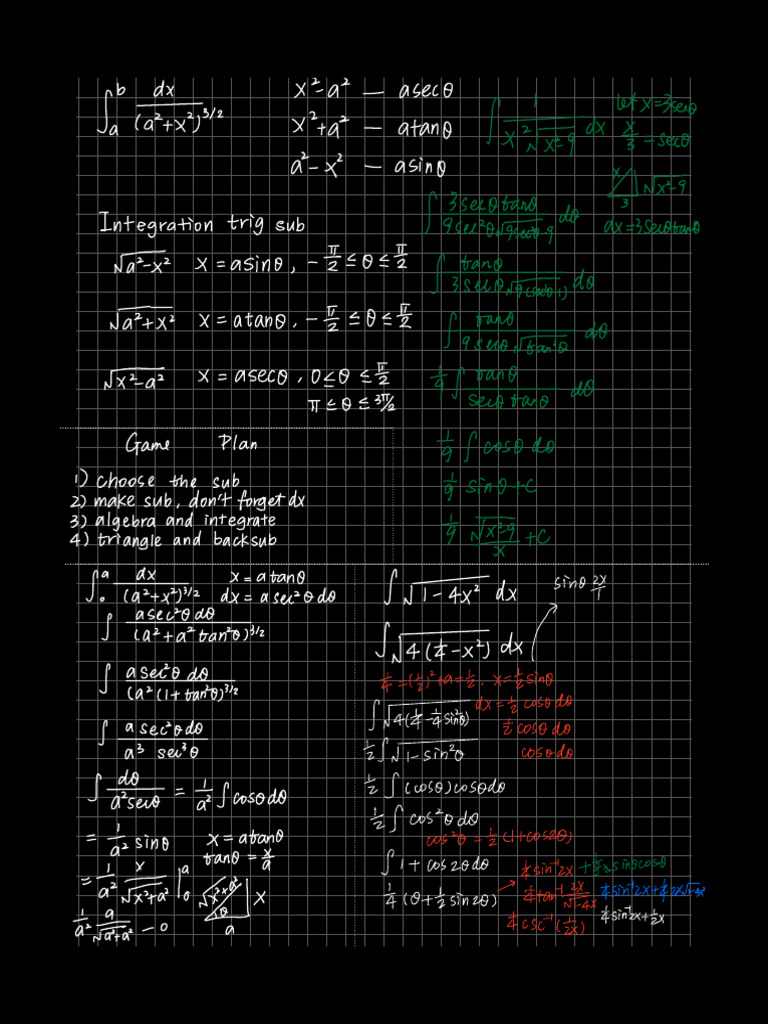 ∫ₐᵇ dx/(a²+x²)^3/2
x²-a² — asecθ
x²+a² — atanθ
a²-x² — asinθ
Integration trig sub
√a²-x² x = asinθ, -π/2 ≤ θ ≤ π/2
√a²+x² x = atanθ, -π/2 ≤ θ ≤ π/2
√x²-a² x = asecθ, 0 ≤ θ ≤ π/2
π ≤ θ ≤ 3π/2
∫ 1/(x²√x²-9) dx let x=3secθ
x/3 = secθ
x √x²-9
3
dx = 3secθtanθ
∫ 3secθtanθ/(9sec²θ√9sec²θ-9) dθ
∫ tanθ/(3secθ√9(sec²θ-1)) dθ
∫ tanθ/(9secθ√tan²θ) dθ
1/9 ∫ tanθ/(secθ tanθ) dθ
1/9 ∫ cosθ dθ
1/9 sinθ + C
1/9 √x²-9/x + C
Game Plan
1) choose the sub
2) make sub, don't forget dx
3) algebra and integrate
4) triangle and backsub
∫₀ᵃ dx/(a²+x²)^3/2 x = a tanθ
dx = a sec²θ dθ
∫ asec²θ dθ/(a²+a²tan²θ)^3/2
∫ asec²θ dθ/(a²(1+tan²θ)^3/2
∫ a sec²θ dθ/a³ sec³θ
∫ dθ/a²secθ = 1/a² ∫ cosθ dθ
= 1/a² sinθ x = atanθ
tanθ = x/a
= 1/a² x/√x²+a² |₀ᵃ √x²+a² x
θ
a
1/a² a/√a²+a² - 0
∫ √1-4x² dx sinθ 2x/1
∫ √4(1/4-x²) dx
1/4 = (1/2)² + a = 1/2, x = 1/2 sinθ
∫ √4(1/4-1/4sin²θ) dx = 1/2 cosθ dθ
1/2 cosθ dθ
1/2 ∫ √1-sin²θ cosθ dθ
1/2 ∫ (cosθ) cosθ dθ
1/2 ∫ cos²θ dθ
cos²θ = 1/2 (1+cos2θ)
∫ 1 + cos2θ dθ
1/4 (θ + 1/2 sin2θ)
1/4 sin⁻¹2x + 1/4·2 sinθcosθ
1/4 tan⁻¹ 2x/√1-4x 1/4 sin⁻¹2x + 1/4 2x√1-4x²
1/4 csc⁻¹ (1/2x) 1/4 sin⁻¹2x + 1/2x